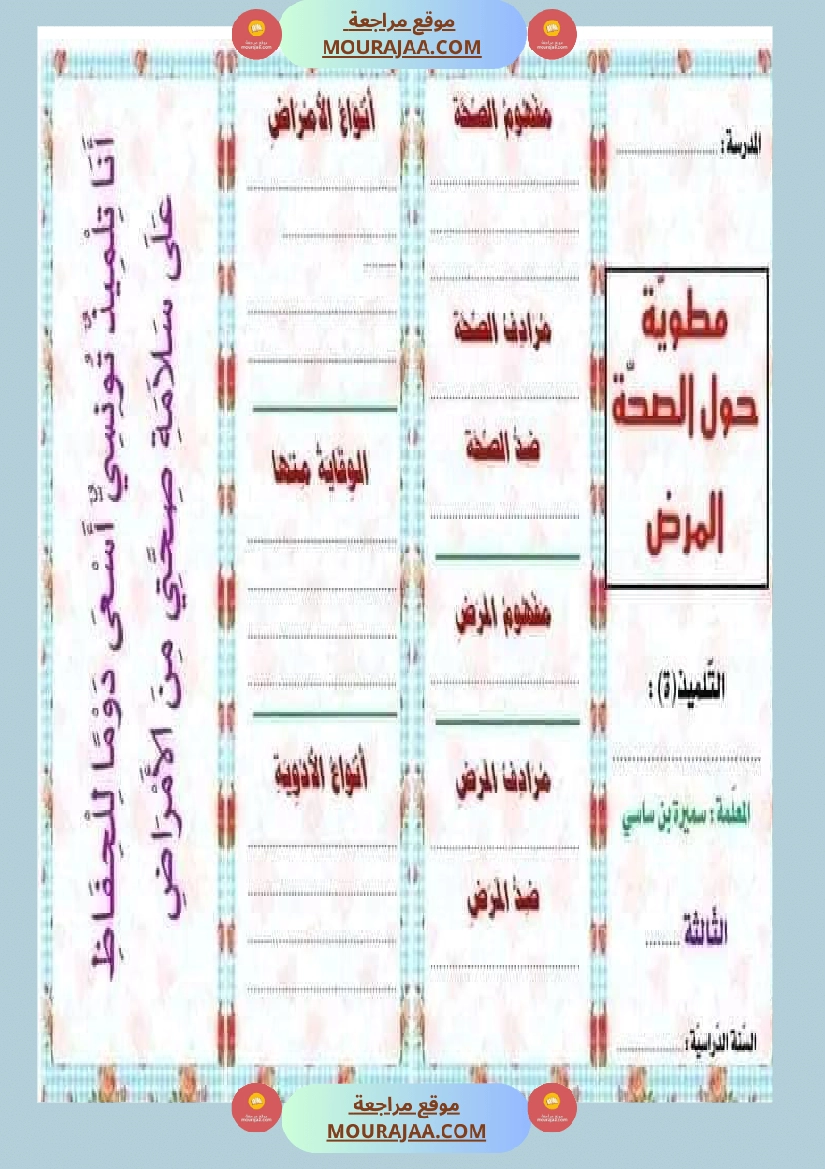 موقع مراجعة
MOURAJAA.COM
المدرسة : ....................
مطويّة
حول الصحّة
المرض
التّلميذ(ة) :
المعلّمة : سميرة بن ساسي
الثّالثة ........
السّنة الدّراسيّة : ....................
مَفْهُومُ الصِّحَّة
مُرَادِفُ الصِّحَّة
ضِدُّ الصِّحَّة
مَفْهُومُ المَرَضِ
مُرَادِفُ المَرَضِ
ضِدُّ المَرَضِ
أَنْوَاعُ الأَمْرَاضِ
الوِقَايَةُ مِنْهَا
أَنْوَاعُ الأَدْوِيَةِ
أَنَا تِلْمِيذٌ تُونِسِيٌّ أَسْعَى دَوْمًا لِلْحِفَاظِ
عَلَى سَلَامَةِ صِحَّتِي مِنَ الأَمْرَاضِ
موقع مراجعة
MOURAJAA.COM